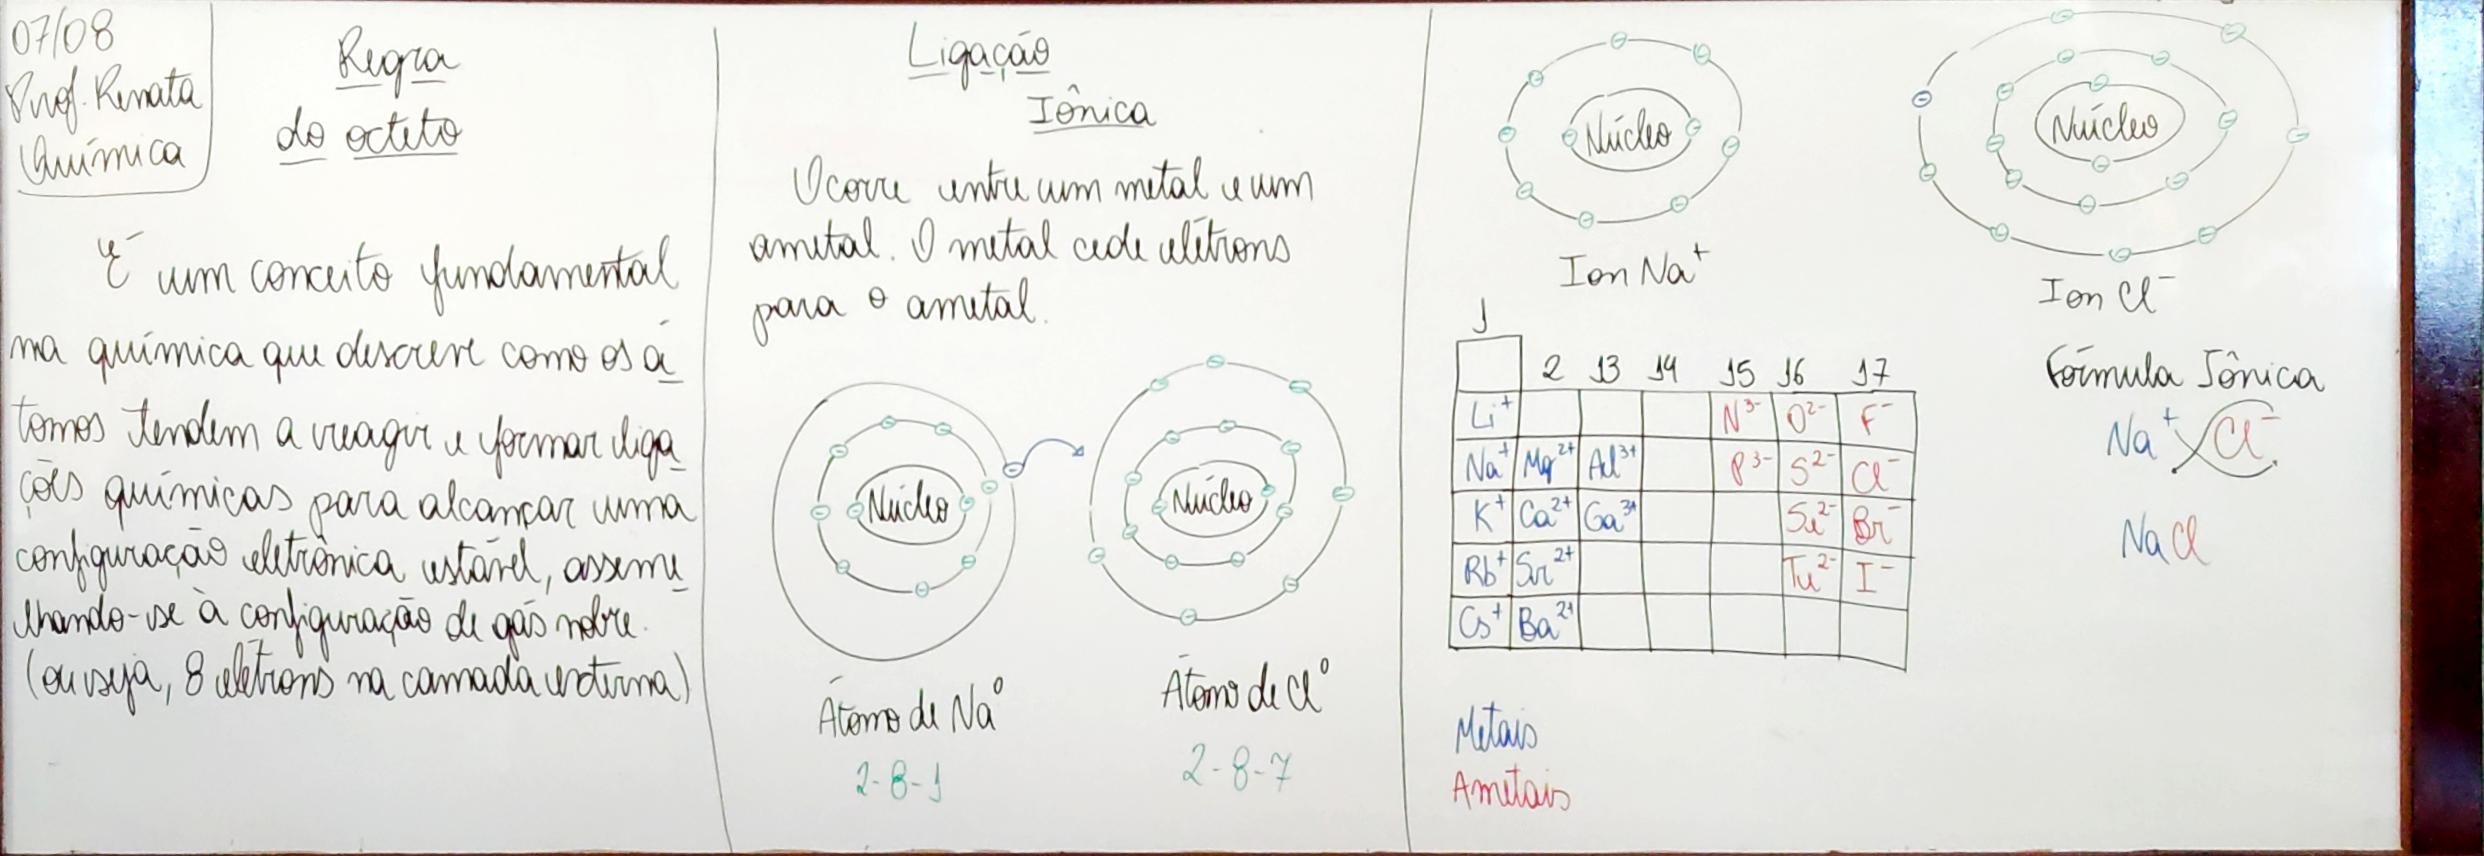 07/08
Prof. Renata
Química
Regra
do octeto
É um conceito fundamental
na química que descreve como os á
tomos tendem a reagir e formar liga
ções químicas para alcançar uma
configuração eletrônica estável, asseme
lhando-se à configuração de gás nobre.
(ou seja, 8 elétrons na camada externa)
Ligação
Iônica
Ocorre entre um metal e um
ametal. O metal cede elétrons
para o ametal.
Núcleo
Núcleo
Átomo de Na⁰
Átomo de Cl⁰
2-8-1
2-8-7
Núcleo
Núcleo
Ion Na⁺
Ion Cl⁻
1
2 13 14 15 16 17
Li⁺ N³⁻ O²⁻ F⁻
Na⁺ Mg²⁺ Al³⁺ P³⁻ S²⁻ Cl⁻
K⁺ Ca²⁺ Ga³⁺ Se²⁻ Br⁻
Rb⁺ Sr²⁺ Te²⁻ I⁻
Cs⁺ Ba²⁺
Metais
Ametais
Fórmula Iônica
Na⁺ Cl⁻
NaCl